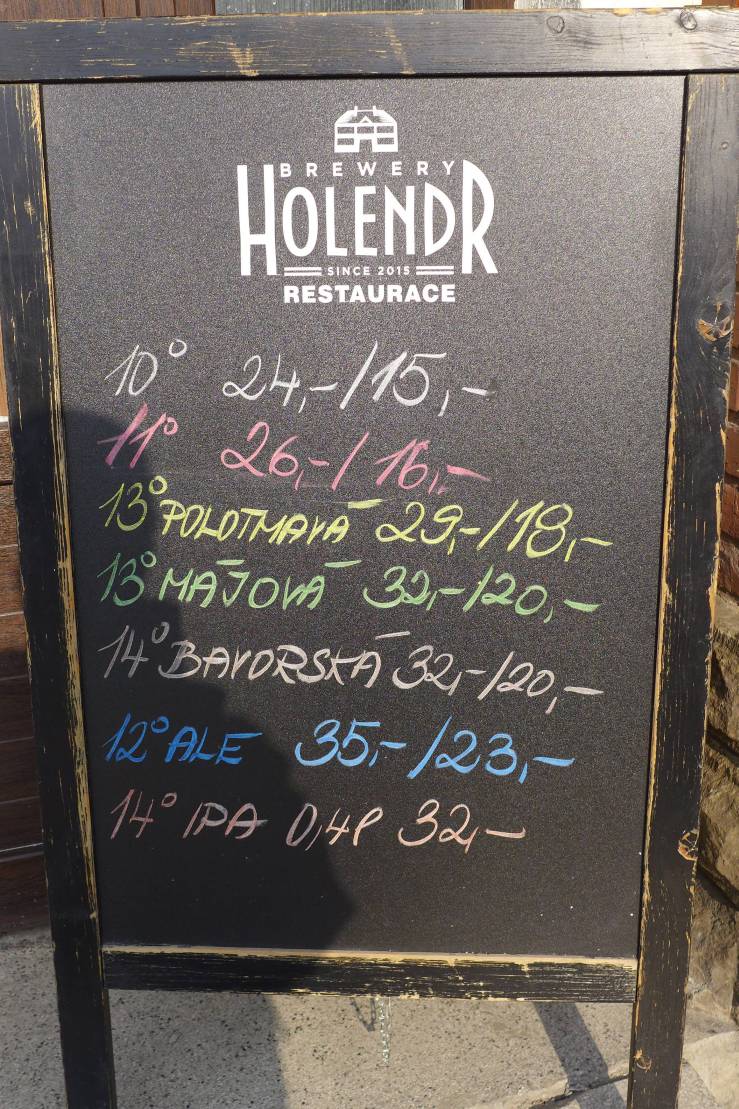 BREWERY
HOLENDR
SINCE 2015
RESTAURACE
10° 24,-/15,-
11° 26,-/16,-
13° POLOTMAVÁ 29,-/18,-
13° MÁJOVÁ 32,-/20,-
14° BAVORSKÁ 32,-/20,-
12° ALE 35,-/23,-
14° IPA 0,4P 32,-